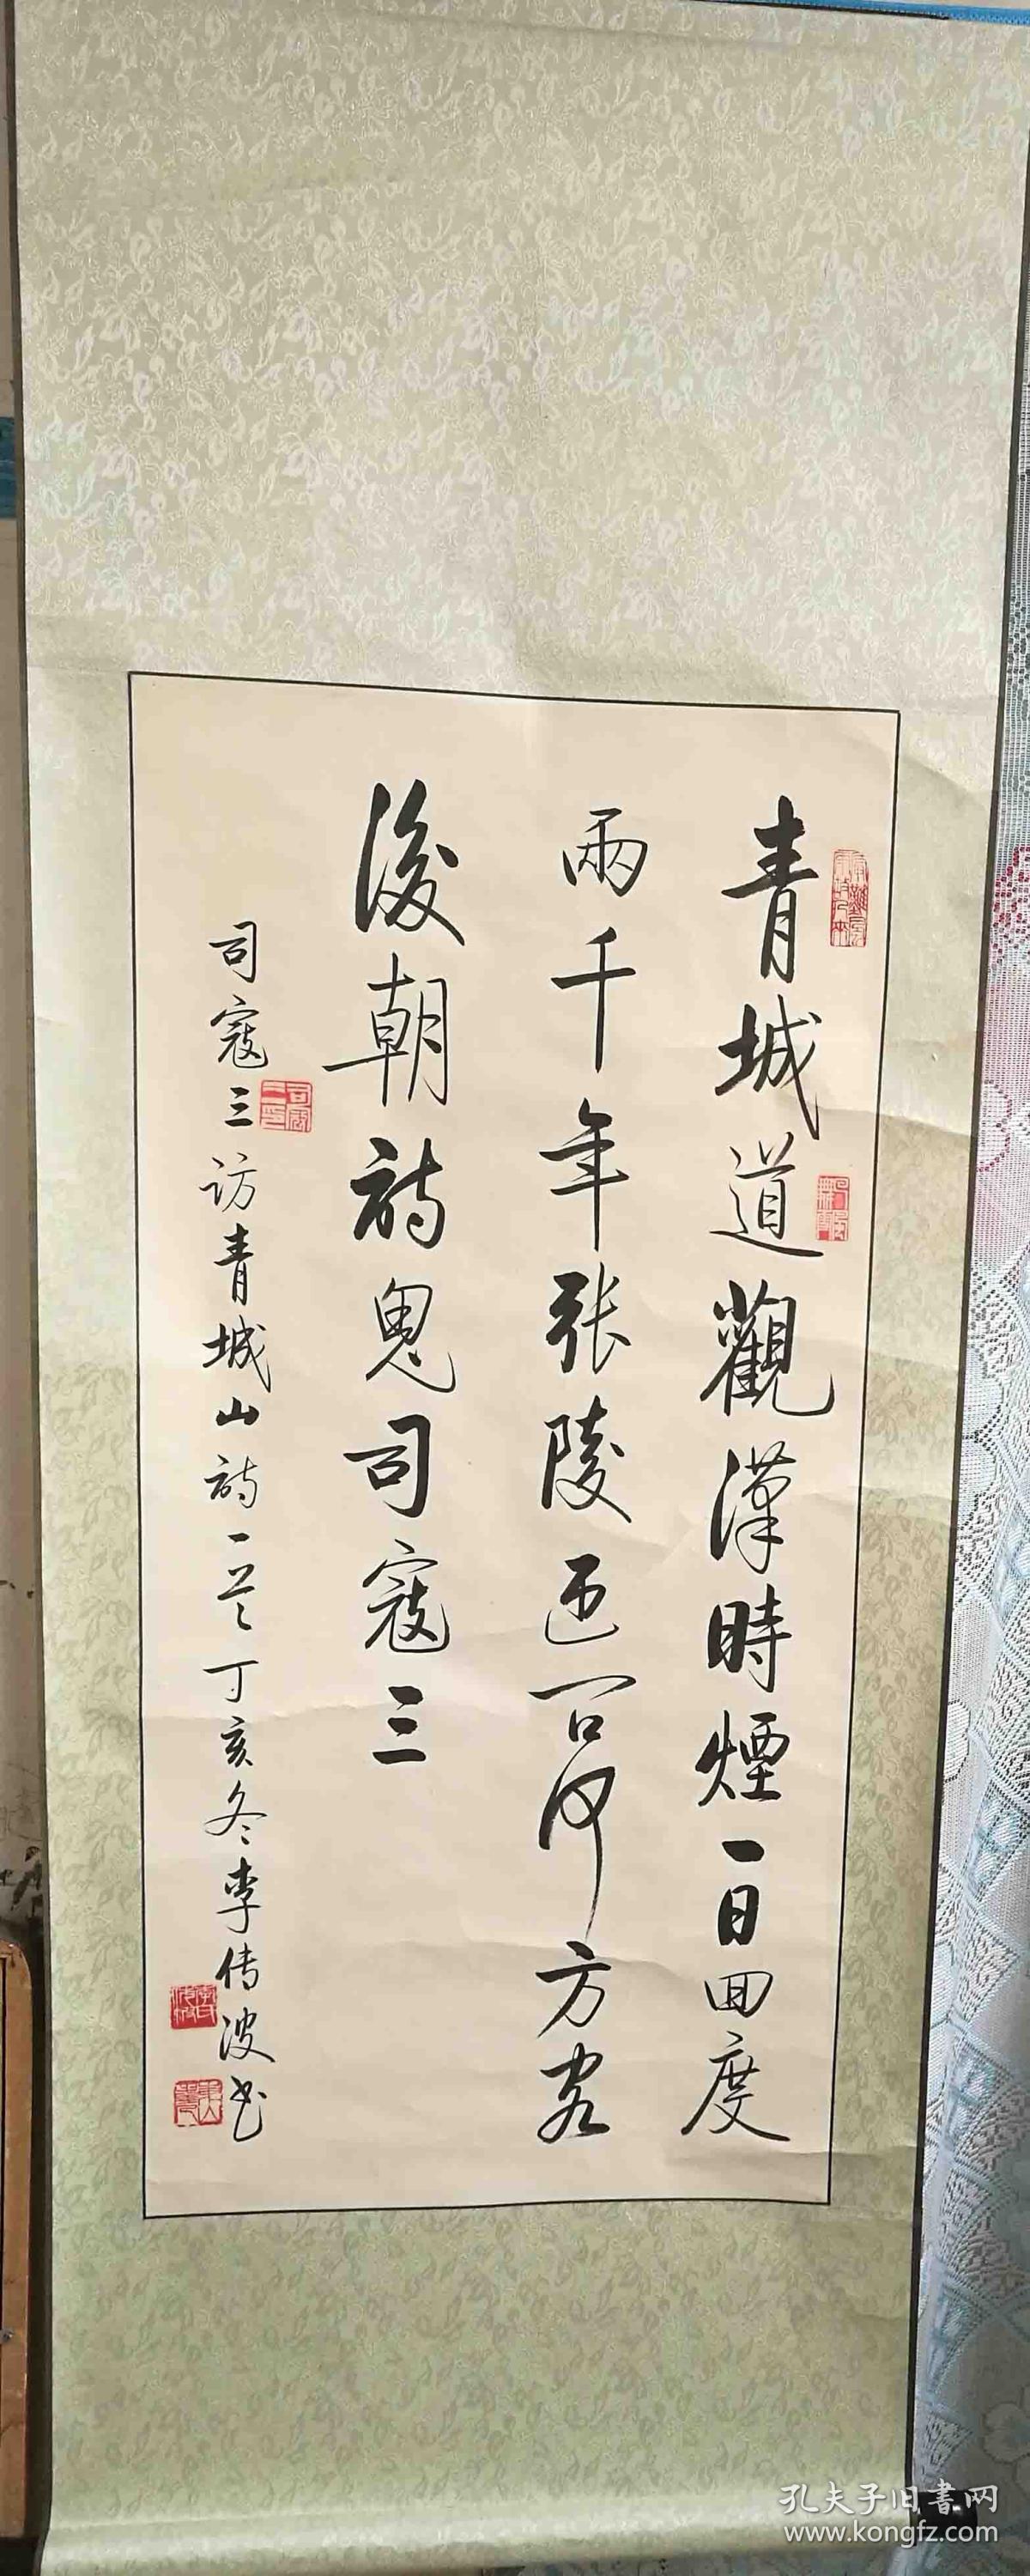 青城道觀漢時煙一日回度
兩千年張陵正吾何方客
後朝詩鬼司寇三
司寇三訪青城山詩一首丁亥冬李传波书
孔夫子旧書网
www.kongfz.com